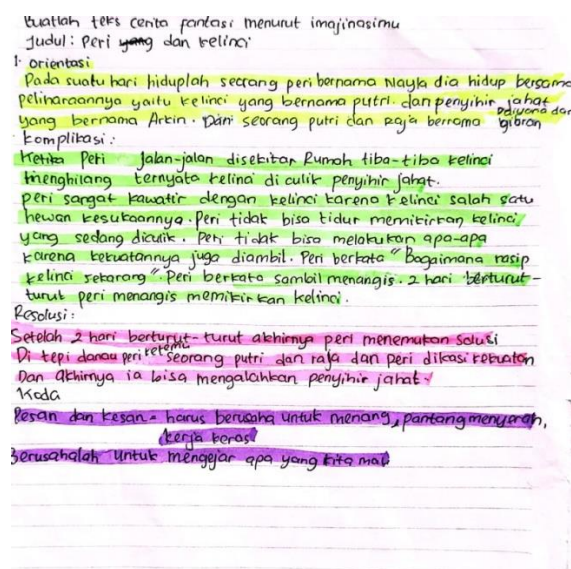 Buatlah teks cerita fantasi menurut imajinasimu
Judul: Peri yang dan kelinci
1. Orientasi
Pada suatu hari hiduplah seorang peri bernama Nayla dia hidup bersama
peliharaannya yaitu kelinci yang bernama putri. dan penyihir jahat
yang bernama Arkin. Dari seorang putri dan Raja bernama Pdiyana dan gibran
Komplikasi:
Ketika Peri jalan-jalan disekitar Rumah tiba-tiba kelinci
menghilang ternyata kelinci di culik penyihir jahat.
peri sangat kawatir dengan kelinci karena kelinci salah satu
hewan kesukaannya. Peri tidak bisa tidur memikirkan kelinci
yang sedang diculik. Peri tidak bisa melakukan apa-apa
karena kekuatannya juga diambil. Peri berkata "Bagaimana nasip
kelinci sekarang". Peri berkata sambil menangis. 2 hari berturut-
turut peri menangis memikirkan kelinci.
Resolusi:
Setelah 2 hari berturut-turut akhirnya peri menemukan solusi
Di tepi danau peri ketemu seorang putri dan raja dan peri dikasi kekuatan
Dan akhirnya ia bisa mengalahkan penyihir jahat.
Koda
Pesan dan kesan = harus berusaha untuk menang, pantang menyerah,
kerja keras
Berusahalah untuk mengejar apa yang kita mau